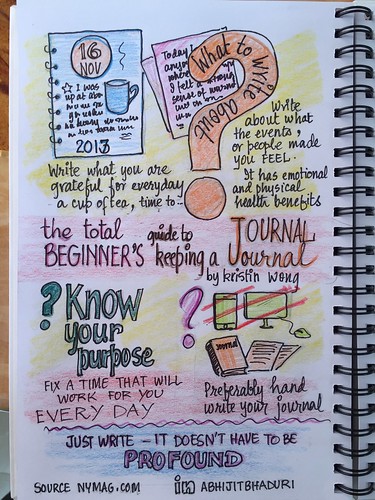 16
NOV
I was
up at
2013
Today
where
I felt a strong
sense of
What to write about
?
Write
about what
the events,
or people made
you FEEL.
It has emotional
and physical
health benefits
Write what you are
grateful for everyday
a cup of tea, time to..
the total
BEGINNER'S guide to
keeping a JOURNAL
Journal
by kristin wong
? Know
your
purpose
?
JOURNAL
FIX A TIME THAT WILL
WORK FOR YOU
EVERY DAY
Preferably hand
write your journal
JUST WRITE – IT DOESN'T HAVE TO BE
PROFOUND
SOURCE NYMAG.COM
in ABHIJITBHADURI